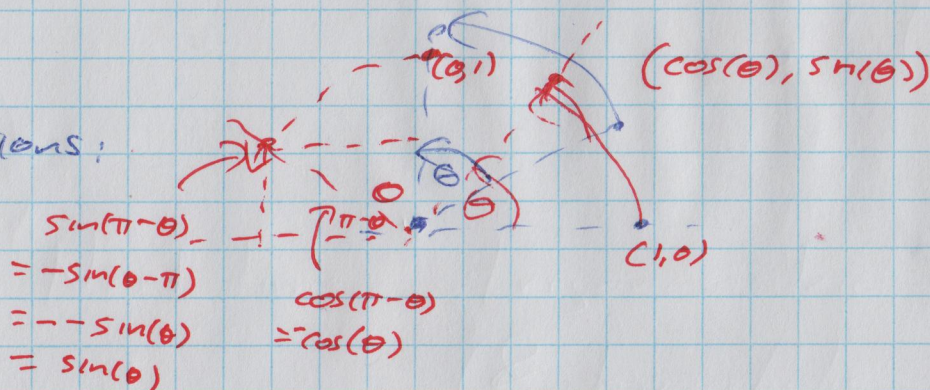 (0,1)
(cos(θ), sin(θ))
ons:
θ
θ
θ
π-θ
(1,0)
sin(π-θ)
= -sin(θ-π)
= --sin(θ)
= sin(θ)
cos(π-θ)
= -cos(θ)